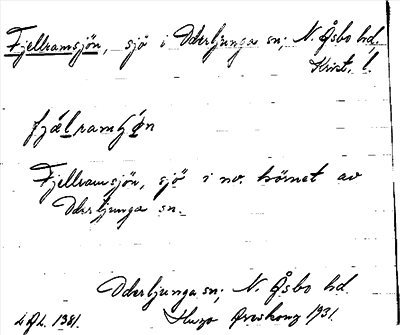 Fjellramsjön, sjö i Oderljunga sn; N. Åsbo hd,
Krist. l.
fjælramʃǿn
Fjellramsjön, sjö i nv. hörnet av
Oderljunga sn.
Oderljunga sn; N. Åsbo hd.
Hugo 1931.
1981.